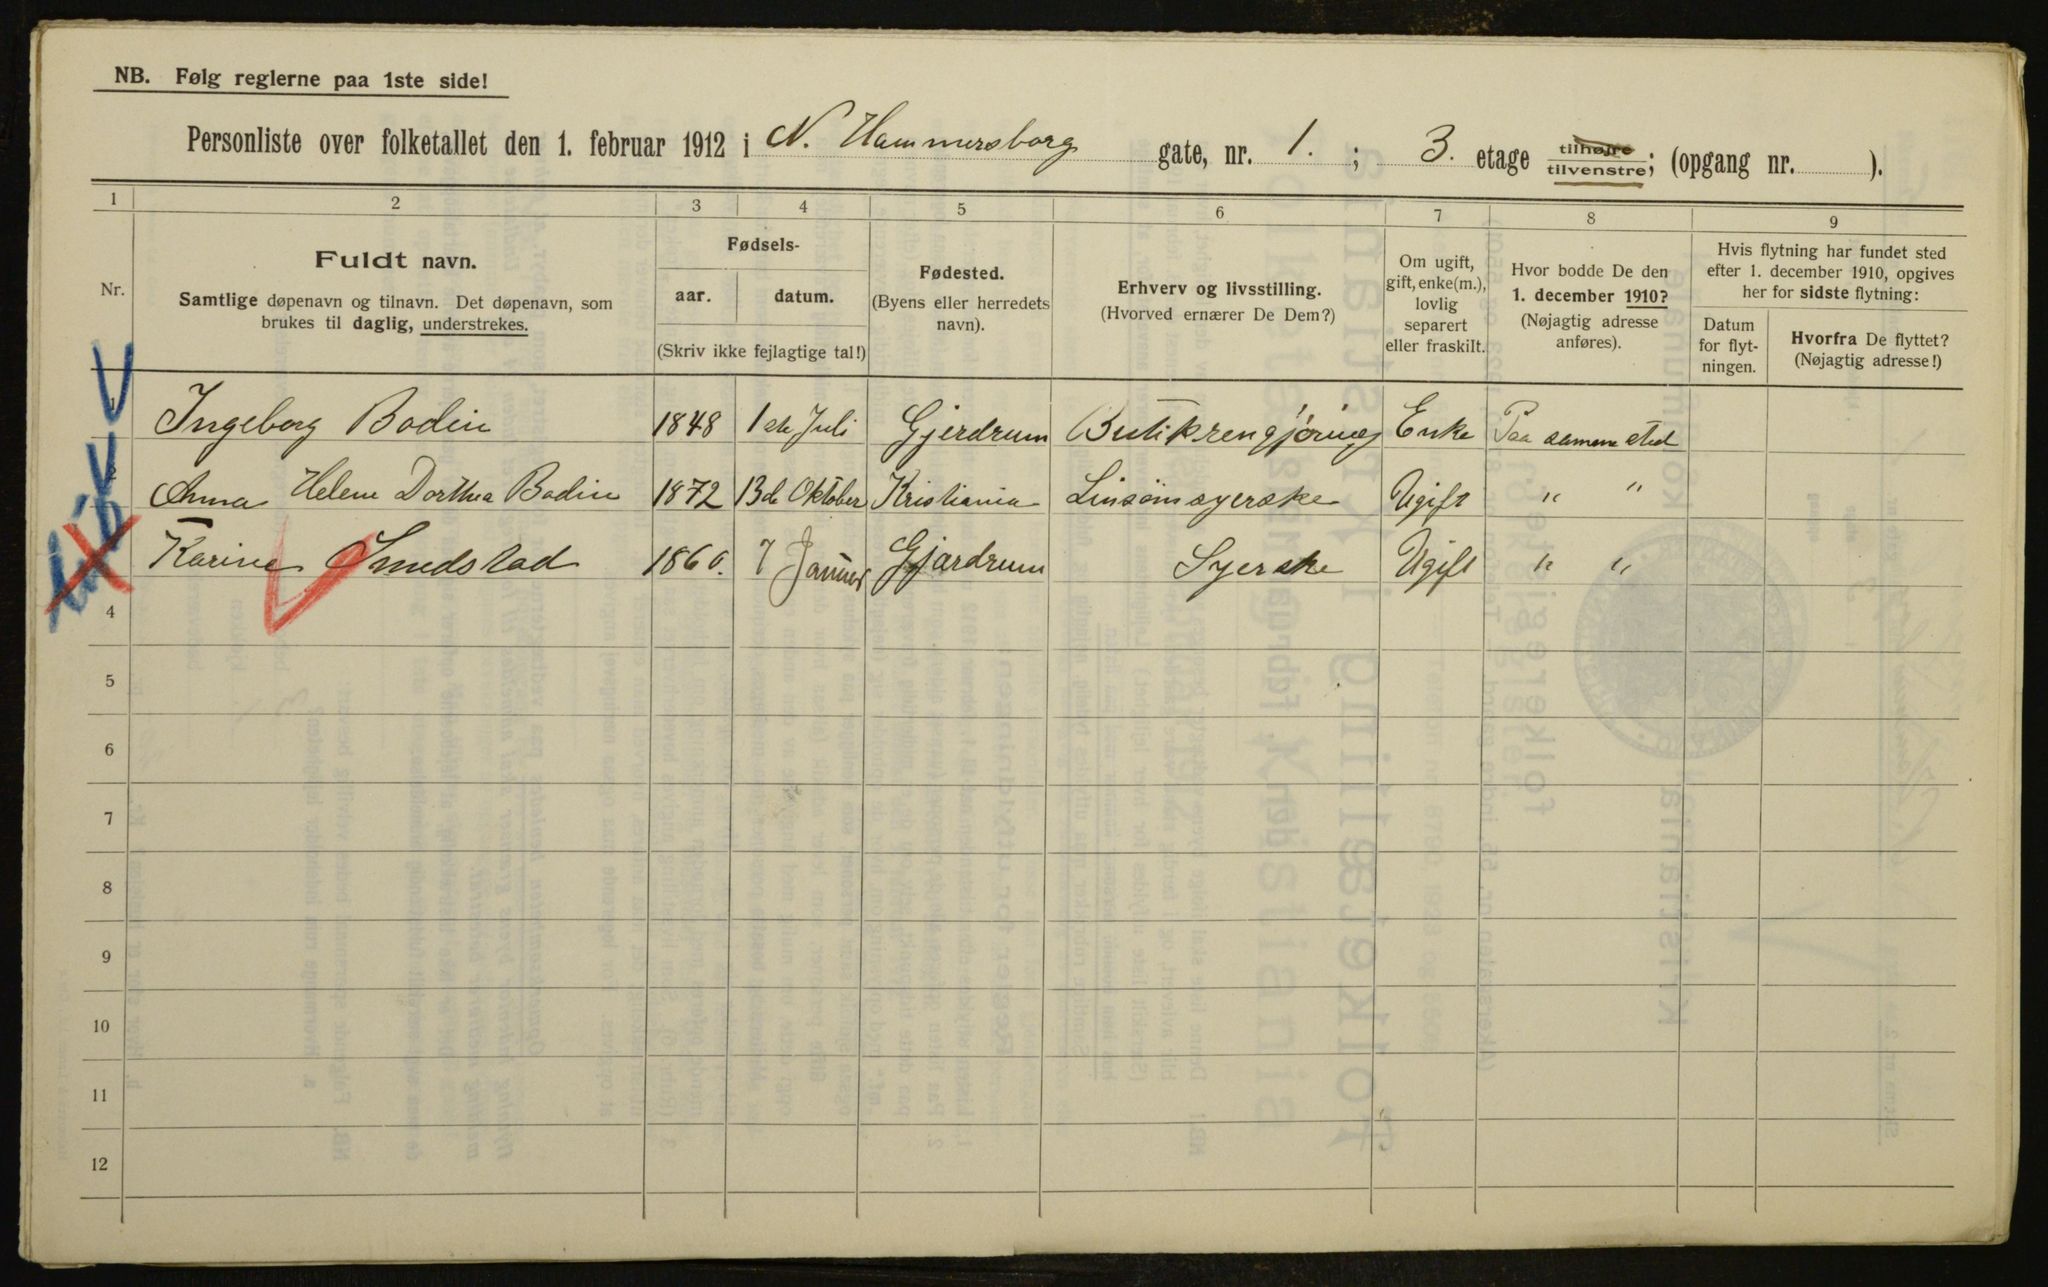 NB. Følg reglerne paa 1ste side!
Personliste over folketallet den 1. februar 1912 i N. Hammersborg gate, nr. 1. ; 3. etage tilhøjre tilvenstre; (opgang nr. ).
1 2 3 4 5 6 7 8 9
Nr.
Fuldt navn.
Samtlige døpenavn og tilnavn. Det døpenavn, som
brukes til daglig, understrekes.
Fødsels-
aar. datum.
(Skriv ikke fejlagtige tal!)
Fødested.
(Byens eller herredets
navn).
Erhverv og livsstilling.
(Hvorved ernærer De Dem?)
Om ugift,
gift, enke(m.),
lovlig
separert
eller fraskilt.
Hvor bodde De den
1. december 1910?
(Nøjagtig adresse
anføres).
Hvis flytning har fundet sted
efter 1. december 1910, opgives
her for sidste flytning:
Datum
for flyt-
ningen.
Hvorfra De flyttet?
(Nøjagtig adresse!)
1 Ingeborg Bodin 1848 1ste Juli Gjerdrum Butikrengjøring Enke Paa samme sted
2 Anna Helene Dorthea Bodin 1872 13de Oktober Kristiania Linsömsyerske Ugift " "
Karine Smedstad 1860. 7 Januar Gjerdrum Syerske Ugift " "
4
5
6
7
8
9
10
11
12